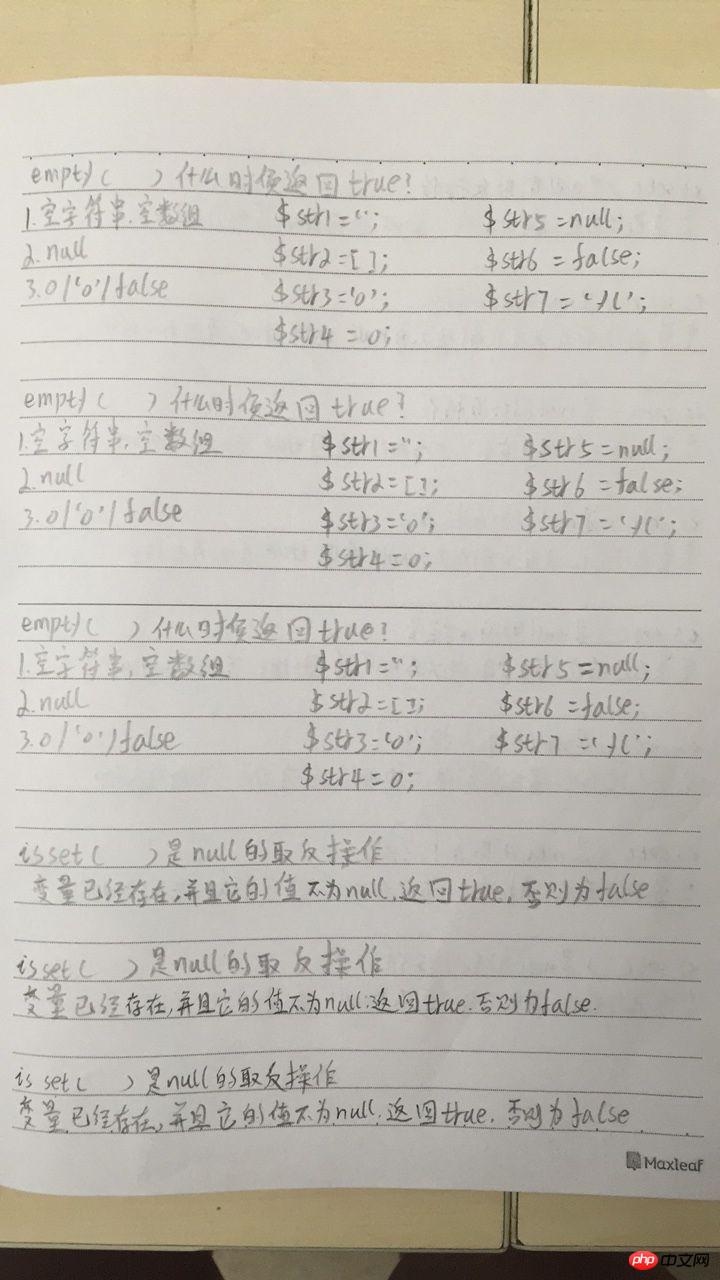 empty( )什么时候返回true?
1.空字符串.空数组 $str1='; $str5=null;
2.null $str2=[]; $str6=false;
3.0/'0'/false $str3='0'; $str7=' ';
$str4=0;
empty( )什么时候返回true?
1.空字符串,空数组 $str1=''; $str5=null;
2.null $str2=[]; $str6=false;
3.0/'0'/false $str3='0'; $str7=' ';
$str4=0;
empty( )什么时候返回true?
1.空字符串,空数组 $str1=''; $str5=null;
2.null $str2=[]; $str6=false;
3.0/'0'/false $str3='0'; $str7=' ';
$str4=0;
isset( )是null的取反操作
变量已经存在,并且它的值不为null,返回true,否则为false
isset( )是null的取反操作
变量已经存在,并且它的值不为null,返回true.否则为false.
isset( )是null的取反操作
变量已经存在,并且它的值不为null,返回true.否则为false
Maxleaf
php中文网